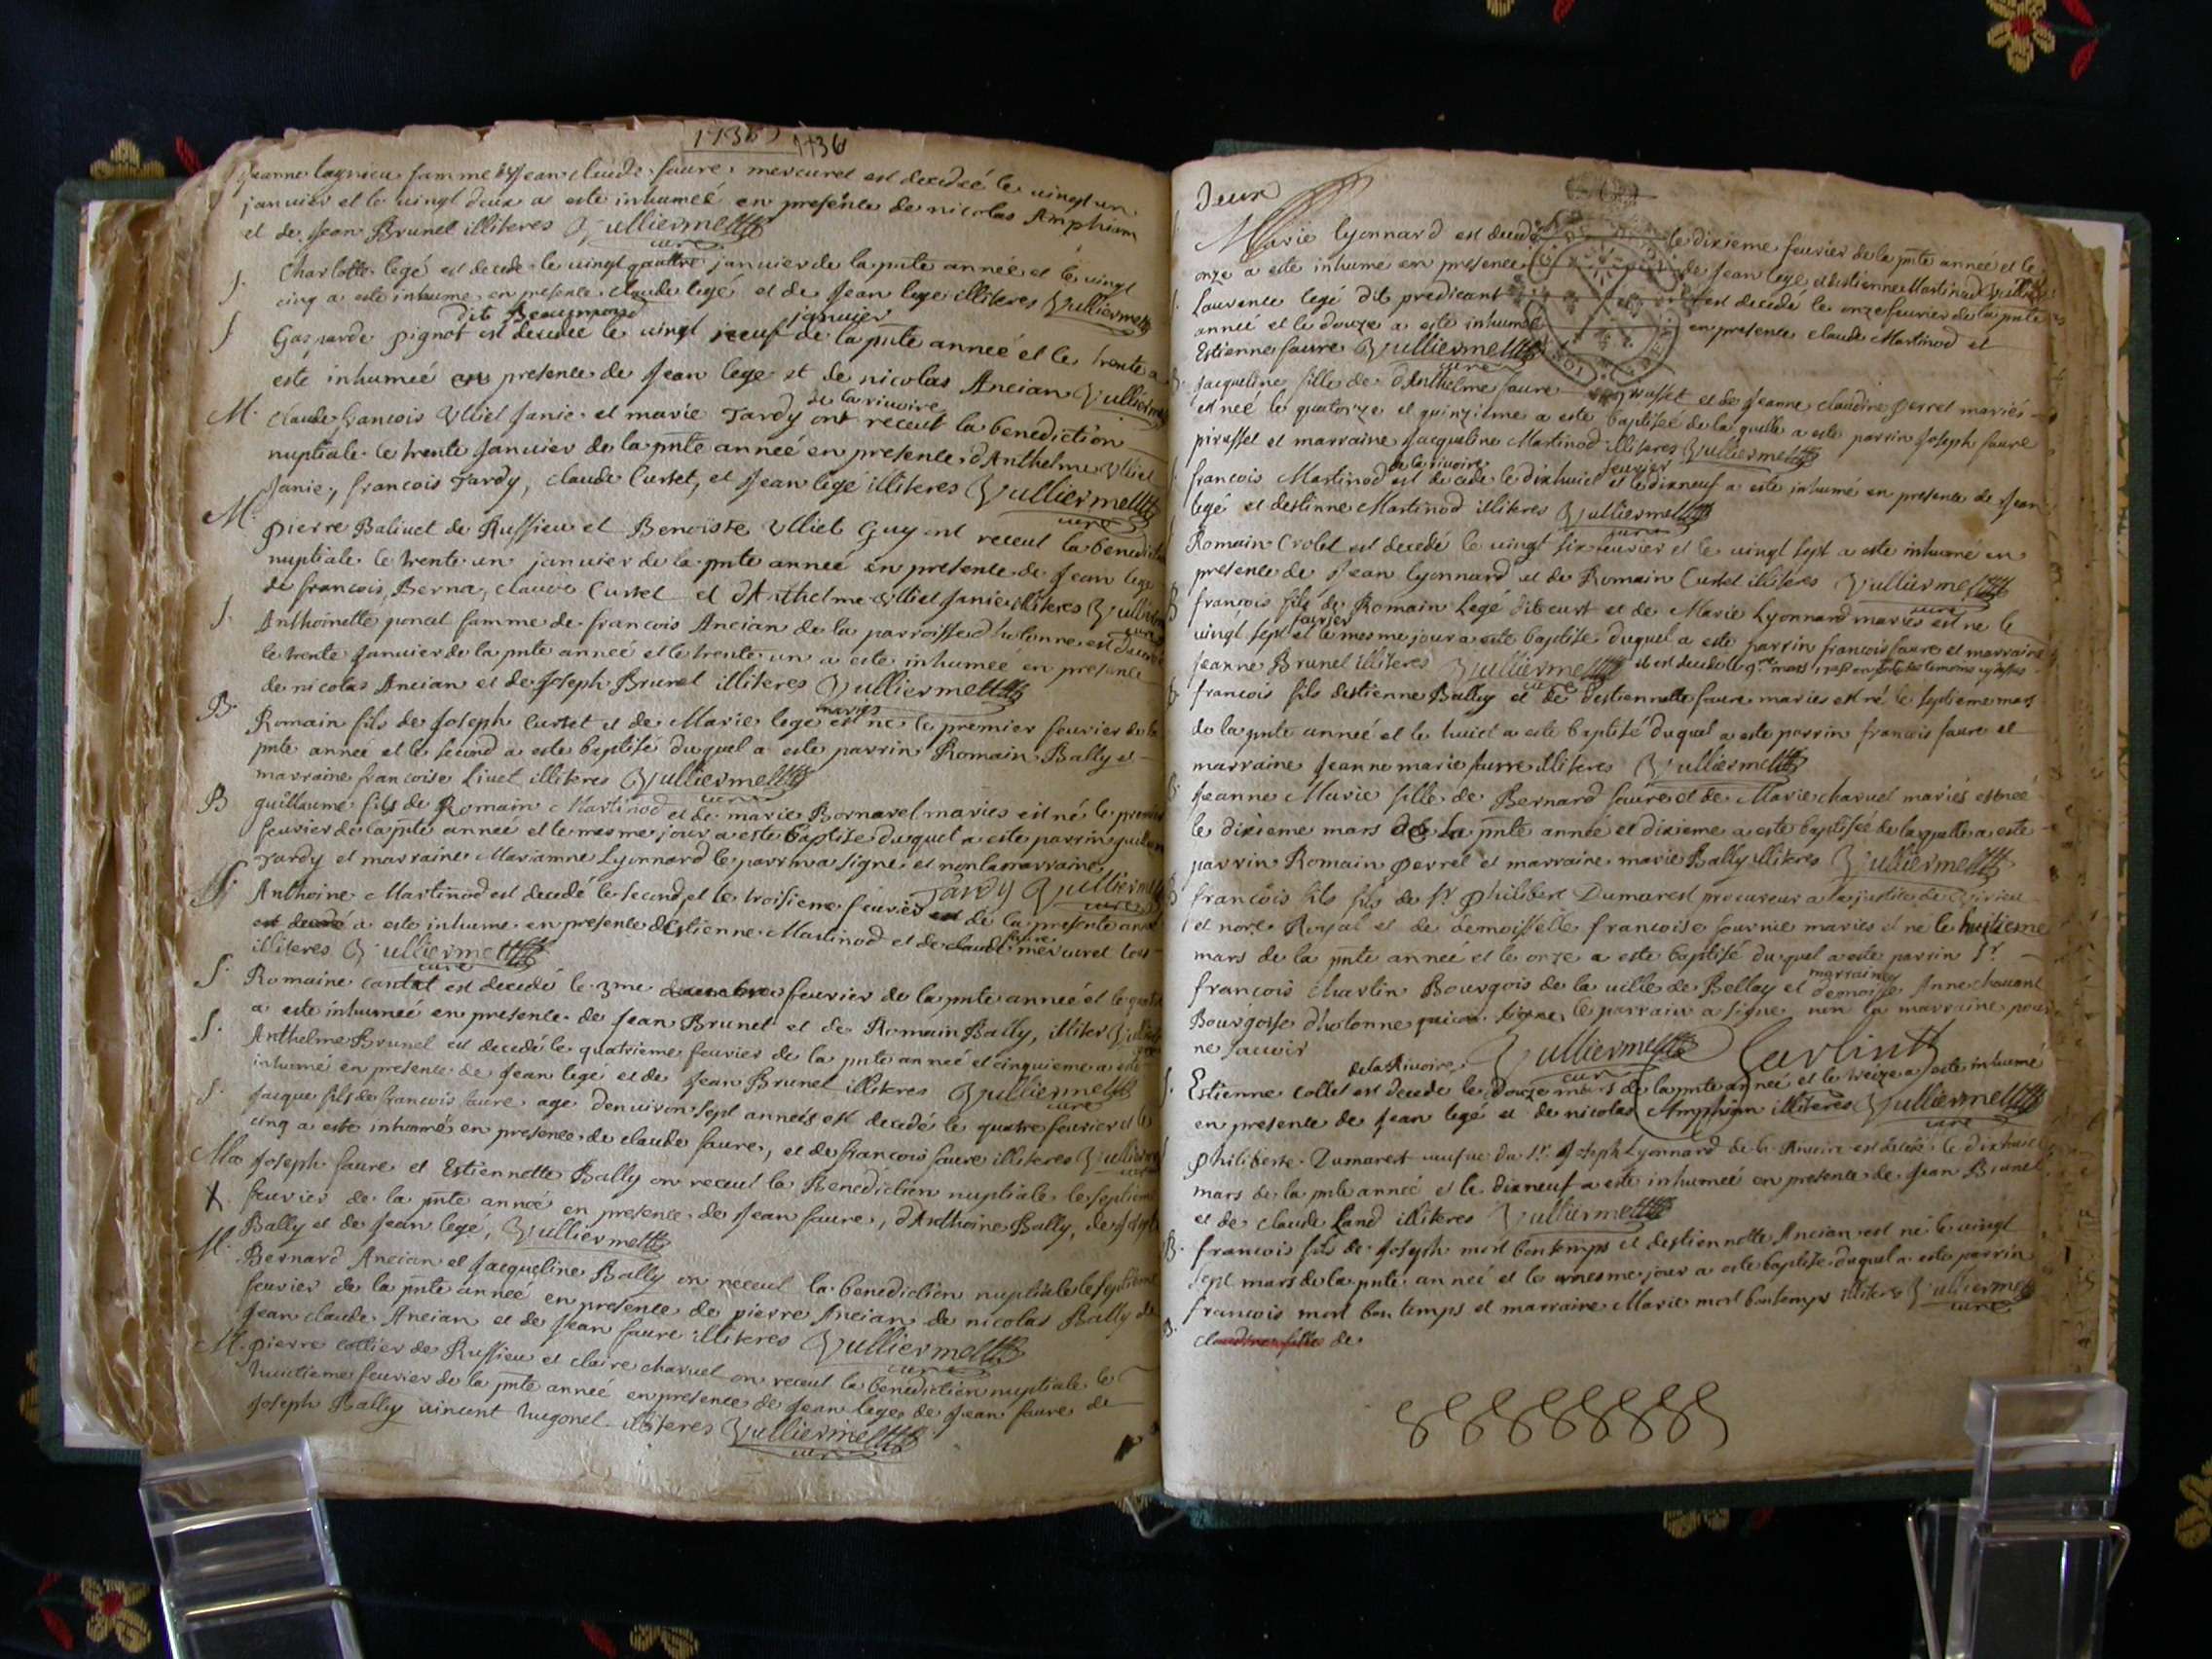 1736
1736
Jeanne lagnieu famme de Jean claude faure mercuret est decedeé le vingt un
januier et le uingt deux a este inhumeé en presence de nicolas Amphian
et de Jean Brunet illiteres Vulliermet
curé
S. Charlotte legé est decede le uingt quattre januier de la pnte année et le vingt
cinq a este inhume en presence claude legé et de Jean lege illiteres Vulliermet
dit Beaumond januier
S Gasparde pignot est decedeé le uingt neuf de la pnte anneé et le trente a
este inhumeé en presence de Jean lege et de nicolas Ancian Vulliermet
de la riuoire
M. claude francois Vlliet Janic et marie Tardy ont receut la benediction
nuptiale le trente Januier de la pnte anneé en presence d'Anthelme Vlliet
Janic, francois Tardy, claude Curtet, et Jean legé illiteres Vulliermet
curé
M. pierre Baliuet de Russieu et Benoiste Vlliet Guy ont receut la benediction
nuptiale le trente un januier de la pnte anneé en presence de Jean lege
de francois Berna, claude Curtet et d'Anthelme Vlliet Janic illiteres Vulliermet
curé
S. Anthoinette poncet famme de francois Ancian de la parroisse d'hotonne est decedé
le trente Januier de la pnte anneé et le trente un a este inhumeé en presence
de nicolas Ancian et de Joseph Brunet illiteres Vulliermet
mariés
B. Romain fils de Joseph Curtet et de Marie legé est né le premier feurier de la
pnte anneé et le second a este baptisé duquel a este parrin Romain Bally et
marraine francoise Liuet illiteres Vulliermet
curé
B guillaume fils de Romain Martinod et de marie Bornarel mariés est né le premier
feurier de la pnte anneé et le mesme jour a este baptise duquel a este parrin
Tardy et marraine Marianne Lyonnard le parrin a signé et non la marraine
Tardy Vulliermet
curé
S. Anthoine Martinod est decedé le second et le troisieme feurier est de la presente anneé
est decedé a este inhume en presence d'Estienne Martinod et de claude faure mercuret tous
illiteres Vulliermet
curé
S. Romaine cantat est decedé le 3me decembre feurier de la pnte anneé et le quatre
a este inhumeé en presence de Jean Brunet et de Romain Bally, illiter Vulliermet
S. Anthelme Brunet est decedé le quatrieme feurier de la pnte anneé et cinquieme a este
inhumé en presence de Jean legé et de Jean Brunet illiteres Vulliermet
curé
S. Jacque fils de francois faure age d'enuiron sept anneés est decedé le quatre feurier et le
cinq a este inhumés en presence de claude faure, et de francois faure illiteres Vulliermet
M Joseph faure et Estiennette Bally on receut la Benediction nuptiale le septieme
X feurier de la pnte anneé en presence de Jean faure, d'Anthoine Bally, de Joseph
Bally et de Jean lege, Vulliermet
M. Bernard Ancian et Jacqueline Bally on receut la benediction nuptiale le septieme
feurier de la pnte anneé en presence de pierre Ancian de nicolas Bally de
Jean claude Ancian et de Jean faure illiteres Vulliermet
curé
M. pierre collier de Russieu et claire charuet on receut la benediction nuptiale le
huictieme feurier de la pnte anneé en presence de Jean lege de Jean faure de
Joseph Bally uincent hugonet illiteres Vulliermet
curé
Deux
Marie Lyonnard est decedé le dixieme feurier de la pnte anneé et le
onze a este inhumé en presence de Jean legé et d'estienne Martinod Vulliermet
Laurence legé dit predicant est decedé le onze feurier de la pnte
anneé et le douze a este inhumeé en presence claude Martinod et
Estienne faure Vulliermet
curé
Jacqueline fille de d'Anthelme faure et de Jeanne claudine perret mariés
est neé le quatorze et quinzieme a este baptiseé de laquelle a este parrin Joseph faure
et marraine Jacqueline Martinod illiteres Vulliermet
de la riuoire feurier
francois Martinod est decede le dixhuict et le dixneuf a este inhumé en presence de Jean
legé et d'estinne Martinod illiteres Vulliermet
curé
Romain Crolet est decedé le uingt six feurier et le uingt sept a este inhumé en
presence de Jean Lyonnard et de Romain Curtet illiteres Vulliermet
curé
B francois fils de Romain Legé dit curt et de Marie Lyonnard mariés est ne le
feurier
uingt sept et le mesme jour a este baptise duquel a este parrin francois faure et marraine
Jeanne Brunet illiteres Vulliermet
B francois fils d'estienne Bally et de d'estiennette faure mariés est né le septieme mars
de la pnte anneé et le huict a este baptisé duquel a este parrin francois faure et
marraine Jeanne marie faure illiteres Vulliermet
B. Jeanne Marie fille de Bernard faure et de Marie charuet mariés est neé
le dixieme mars de la pnte anneé et dixieme a este baptiseé de laquelle a este
parrin Romain perret et marraine marie Bally illiteres Vulliermet
B francois fils fils de Sr Philibert Dumarest procureur a la justice de Virieu
et note Royal et de demoisselle francoise fournie mariés et né le huitieme
mars de la pnte anneé et le onze a este baptisé duquel a este parrin Sr
francois charlin Bourgois de la uille de Bellay et marraine demoise Anne chauent
Bourgoise d'hotonne le parrain a signe non la marraine pour
ne scauoir Vulliermet Carlin
curé
de la Riuoire
S. Estienne collet est decede le douze mars de la pnte anneé et le treize a este inhumé
en presence de Jean legé et de nicolas Amphian illiteres Vulliermet
curé
philiberte Dumarest ueufue du Sr Joseph Lyonnard de la Riuoire est decedé le dixhuict
mars de la pnte anneé et le dixneuf a este inhumeé en presence de Jean Brunet
et de claude Land illiteres Vulliermet
B. francois fils de Joseph mort bontemps et d'estiennette Ancian est né le uingt
sept mars de la pnte anneé et le mesme jour a este baptise duquel a este parrin
francois mort bon temps et marraine Marie mort bontemps illiteres Vulliermet
curé
B. claudine fille de